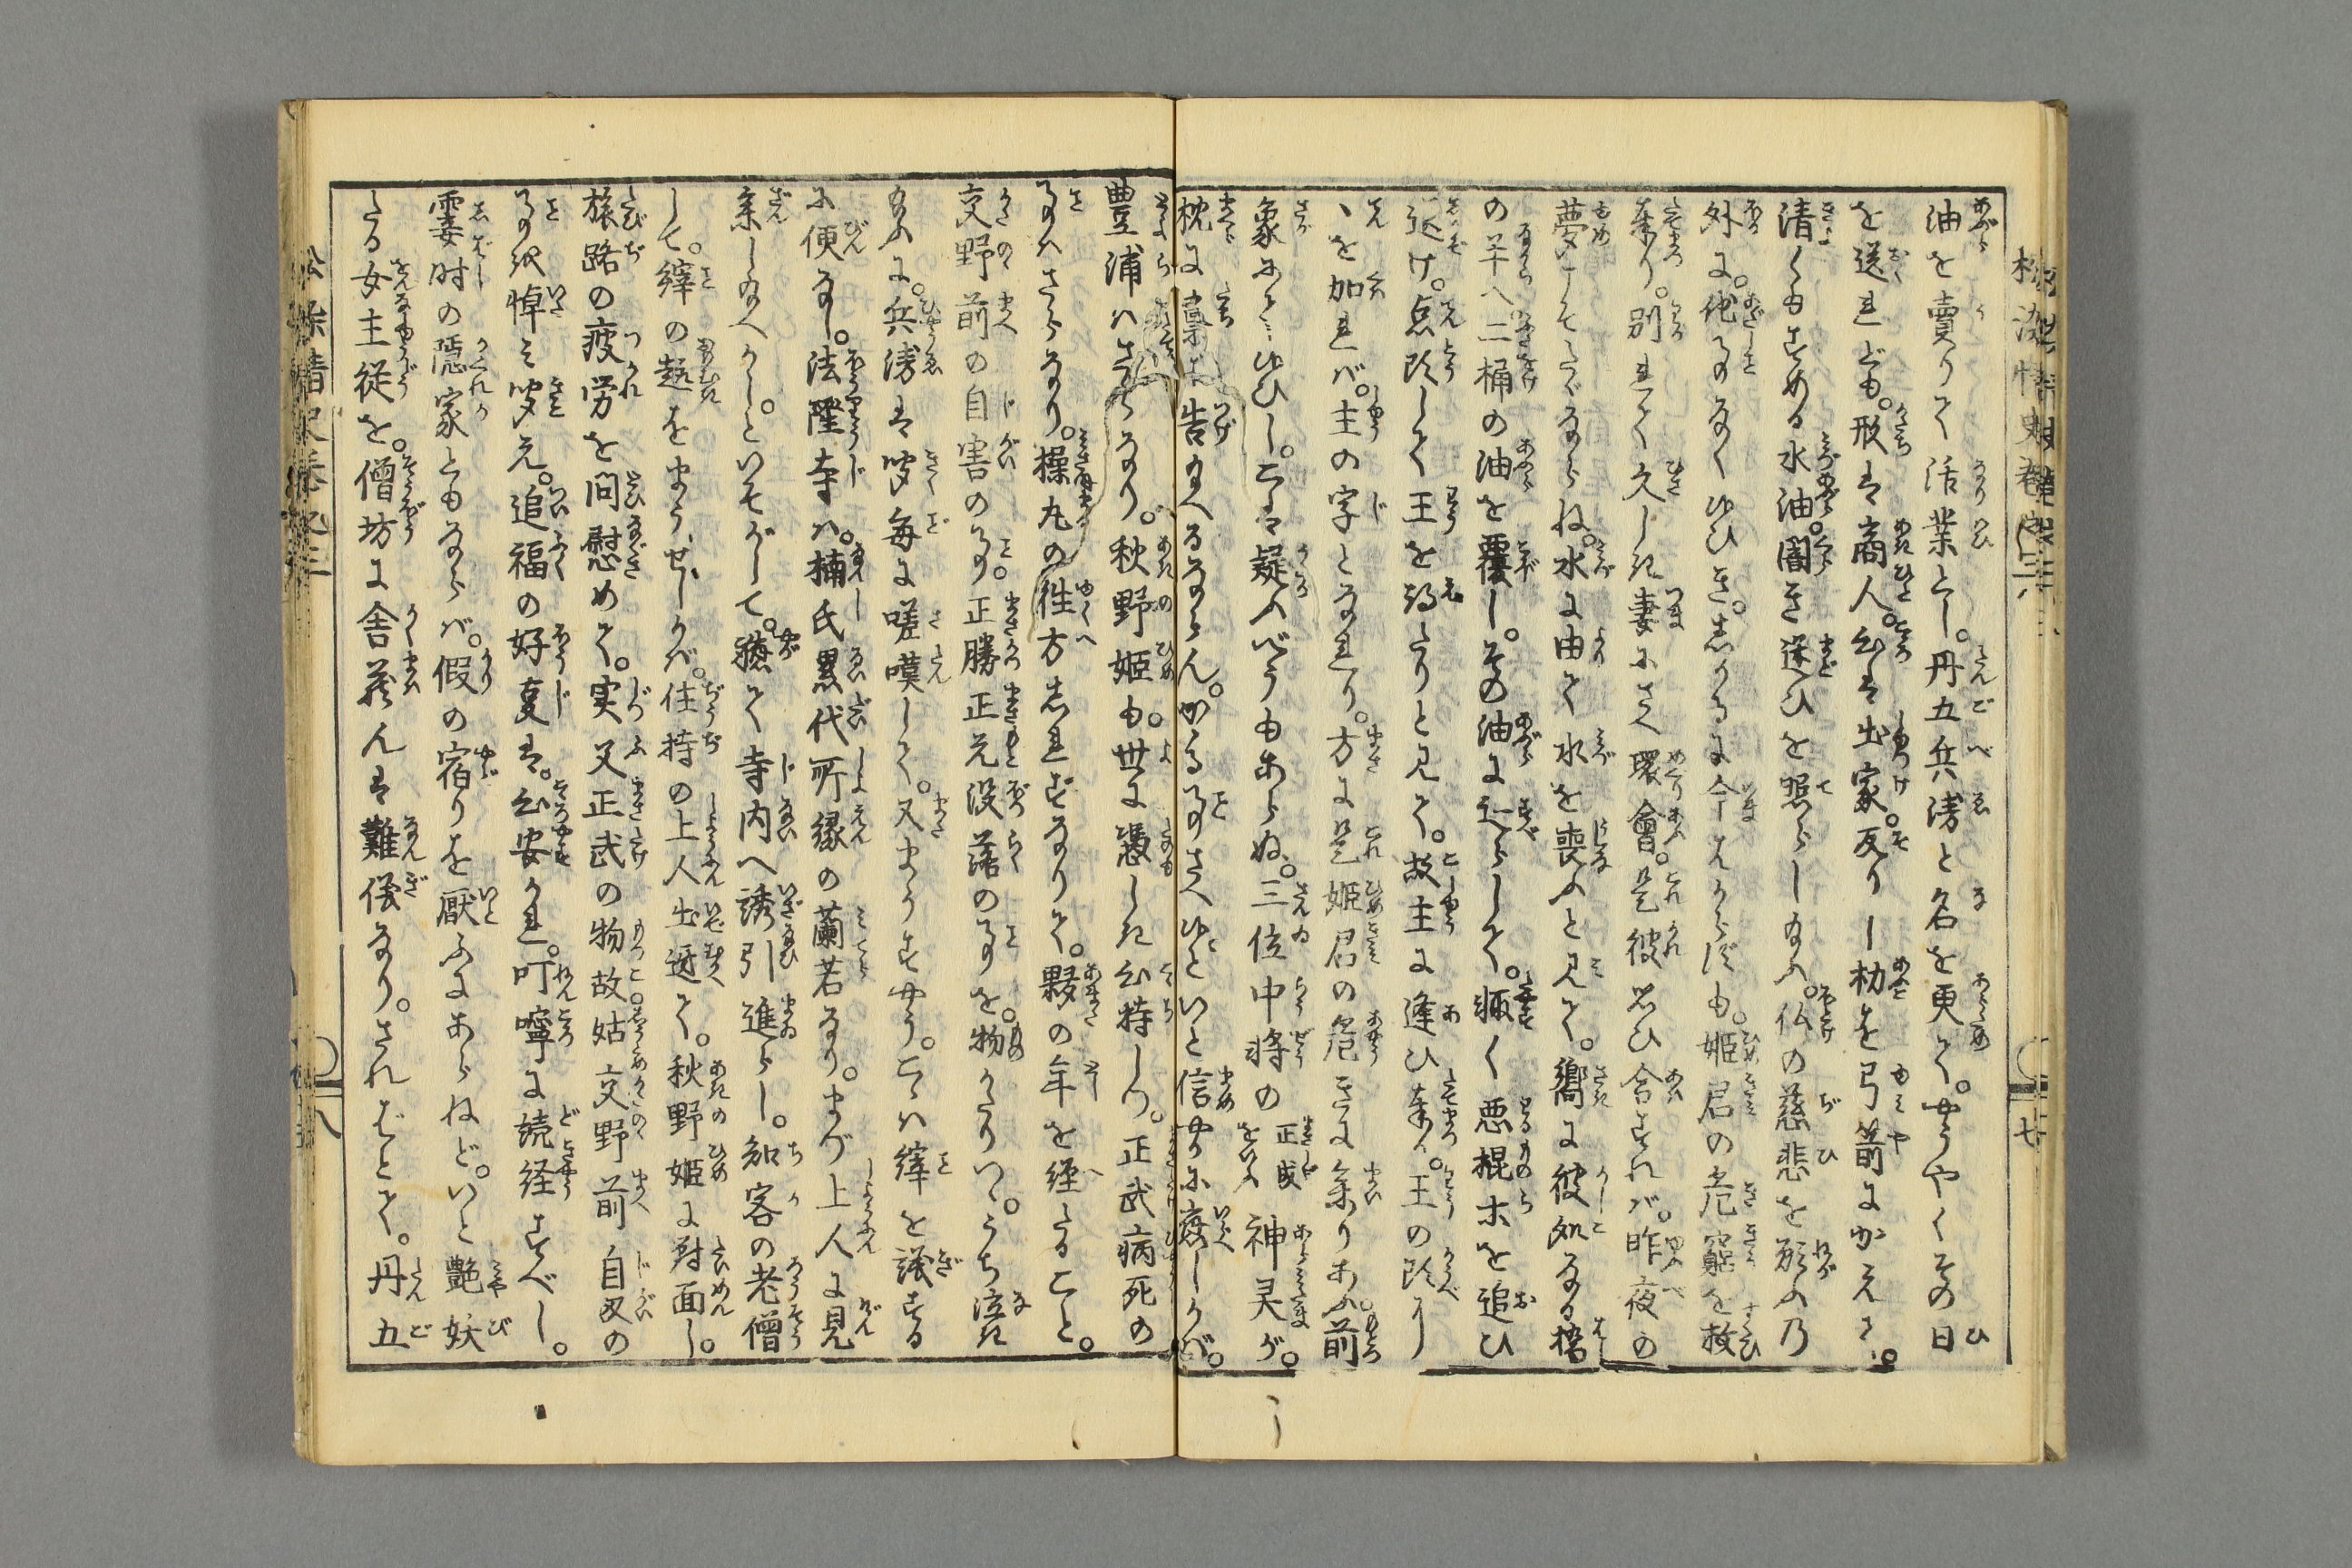 油を賣りて活業とし。丹五兵衛と名を更て。やうやくその日
を送れども。形は商人。心は出家。反りし枴を弓箭にかえて。
清くもすめる水油。闇き迷ひを照らし給ふ。仏の慈悲を願ふ乃
外に。他事なくゆひき。しかるに今はからずも。姫君の危窮を救
奉り。別れて久しき妻にさへ環會。是彼思ひ合すれば。昨夜の
夢こそたゞならね。水に由て水を喪ふと見て。嚮に彼処なる橋
の半へ二桶の油を覆し。その油に辷らして。輙く悪棍ホを追ひ
退け。点頭して王を得たりと見て。故主に逢ひ奉り。王の頭に
丶を加れバ。主の字となれり。方に是姫君の危きに参りあふ。前
象にこそゆひし。こは疑ふべうもあらぬ。三位中将の正成をいふ神灵が。
枕に稟ホ告給へるならん。かゝる事さへゆひといと信実に演しかバ。
豊浦ハさらなり。秋野姫も。世に憑しき心持しつ。正武病死の
事ハさらなり。操丸の往方しれずなりて。夥の年を經たること。
交野前の自害の事。正勝正元没落の事を。物かたりつゝ。うち泣き
給ふに。兵衛は聞毎に嗟嘆して。又まうすやう。こゝハ縡を議する
に便なし。法隆寺ハ。楠氏累代所縁の蘭若なり。まづ上人に見
参し給へかしといそがして。穏て寺内へ誘引進らし。知客の老僧
して。縡の趣をまうせしかバ。住持の上人出迎て。秋野姫に対面し。
旅路の疲労を問慰めて。実又正武の物故。姑交野前自殺の
事を悼み聞え。追福の好事は。心安かれ。叮嚀に読経すべし。
霎時の隠家ともならバ。假の宿りを厭ふにあらねど。いと艶妖
たる女主従を。僧坊に舎蔵んは難儀なり。さればとて。丹五